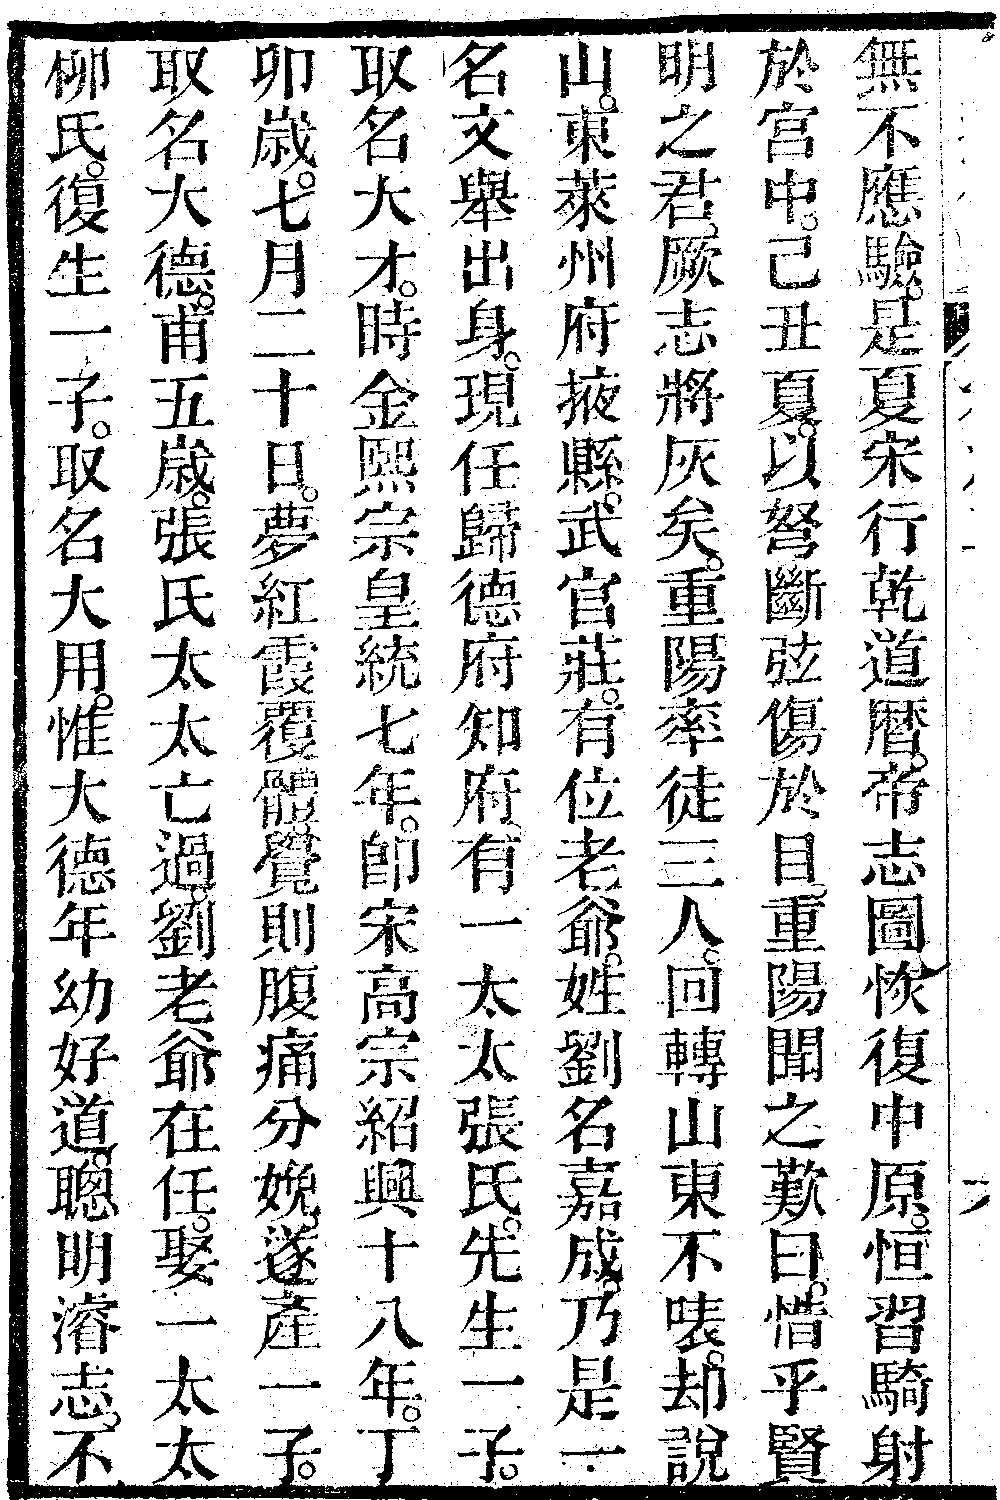 無不應驗。是夏宋行乾道曆。帝志圖恢復中原。恒習騎射
於宮中。己丑夏。以弩斷弦傷於目。重陽聞之歎曰。惜乎賢
明之君。厥志將灰矣。重陽率徒三人。回轉山東不唛。却說
山。東萊州府掖縣。武官莊。有位老爺。姓劉名嘉成。乃是一
名文舉出身。現任歸德府知府。有一太太張氏。先生一子。
取名大才。時金熙宗皇統七年。卽宋高宗紹興十八年。丁
卯歲。七月二十日。夢紅霞覆體覺則腹痛分娩。遂產一子。
取名大德。甫五歲。張氏太太亡過。劉老爺在任。娶一太太
柳氏。復生一子。取名大用。惟大德年幼好道。聰明濬志。不